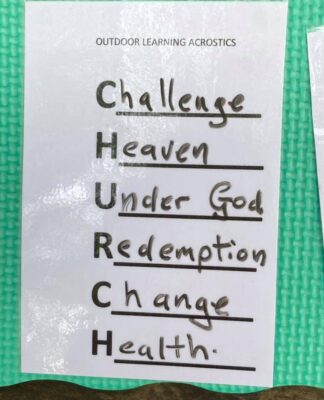 OUTDOOR LEARNING ACROSTICS
Challenge
Heaven
Under God
Redemption
Change
Health.